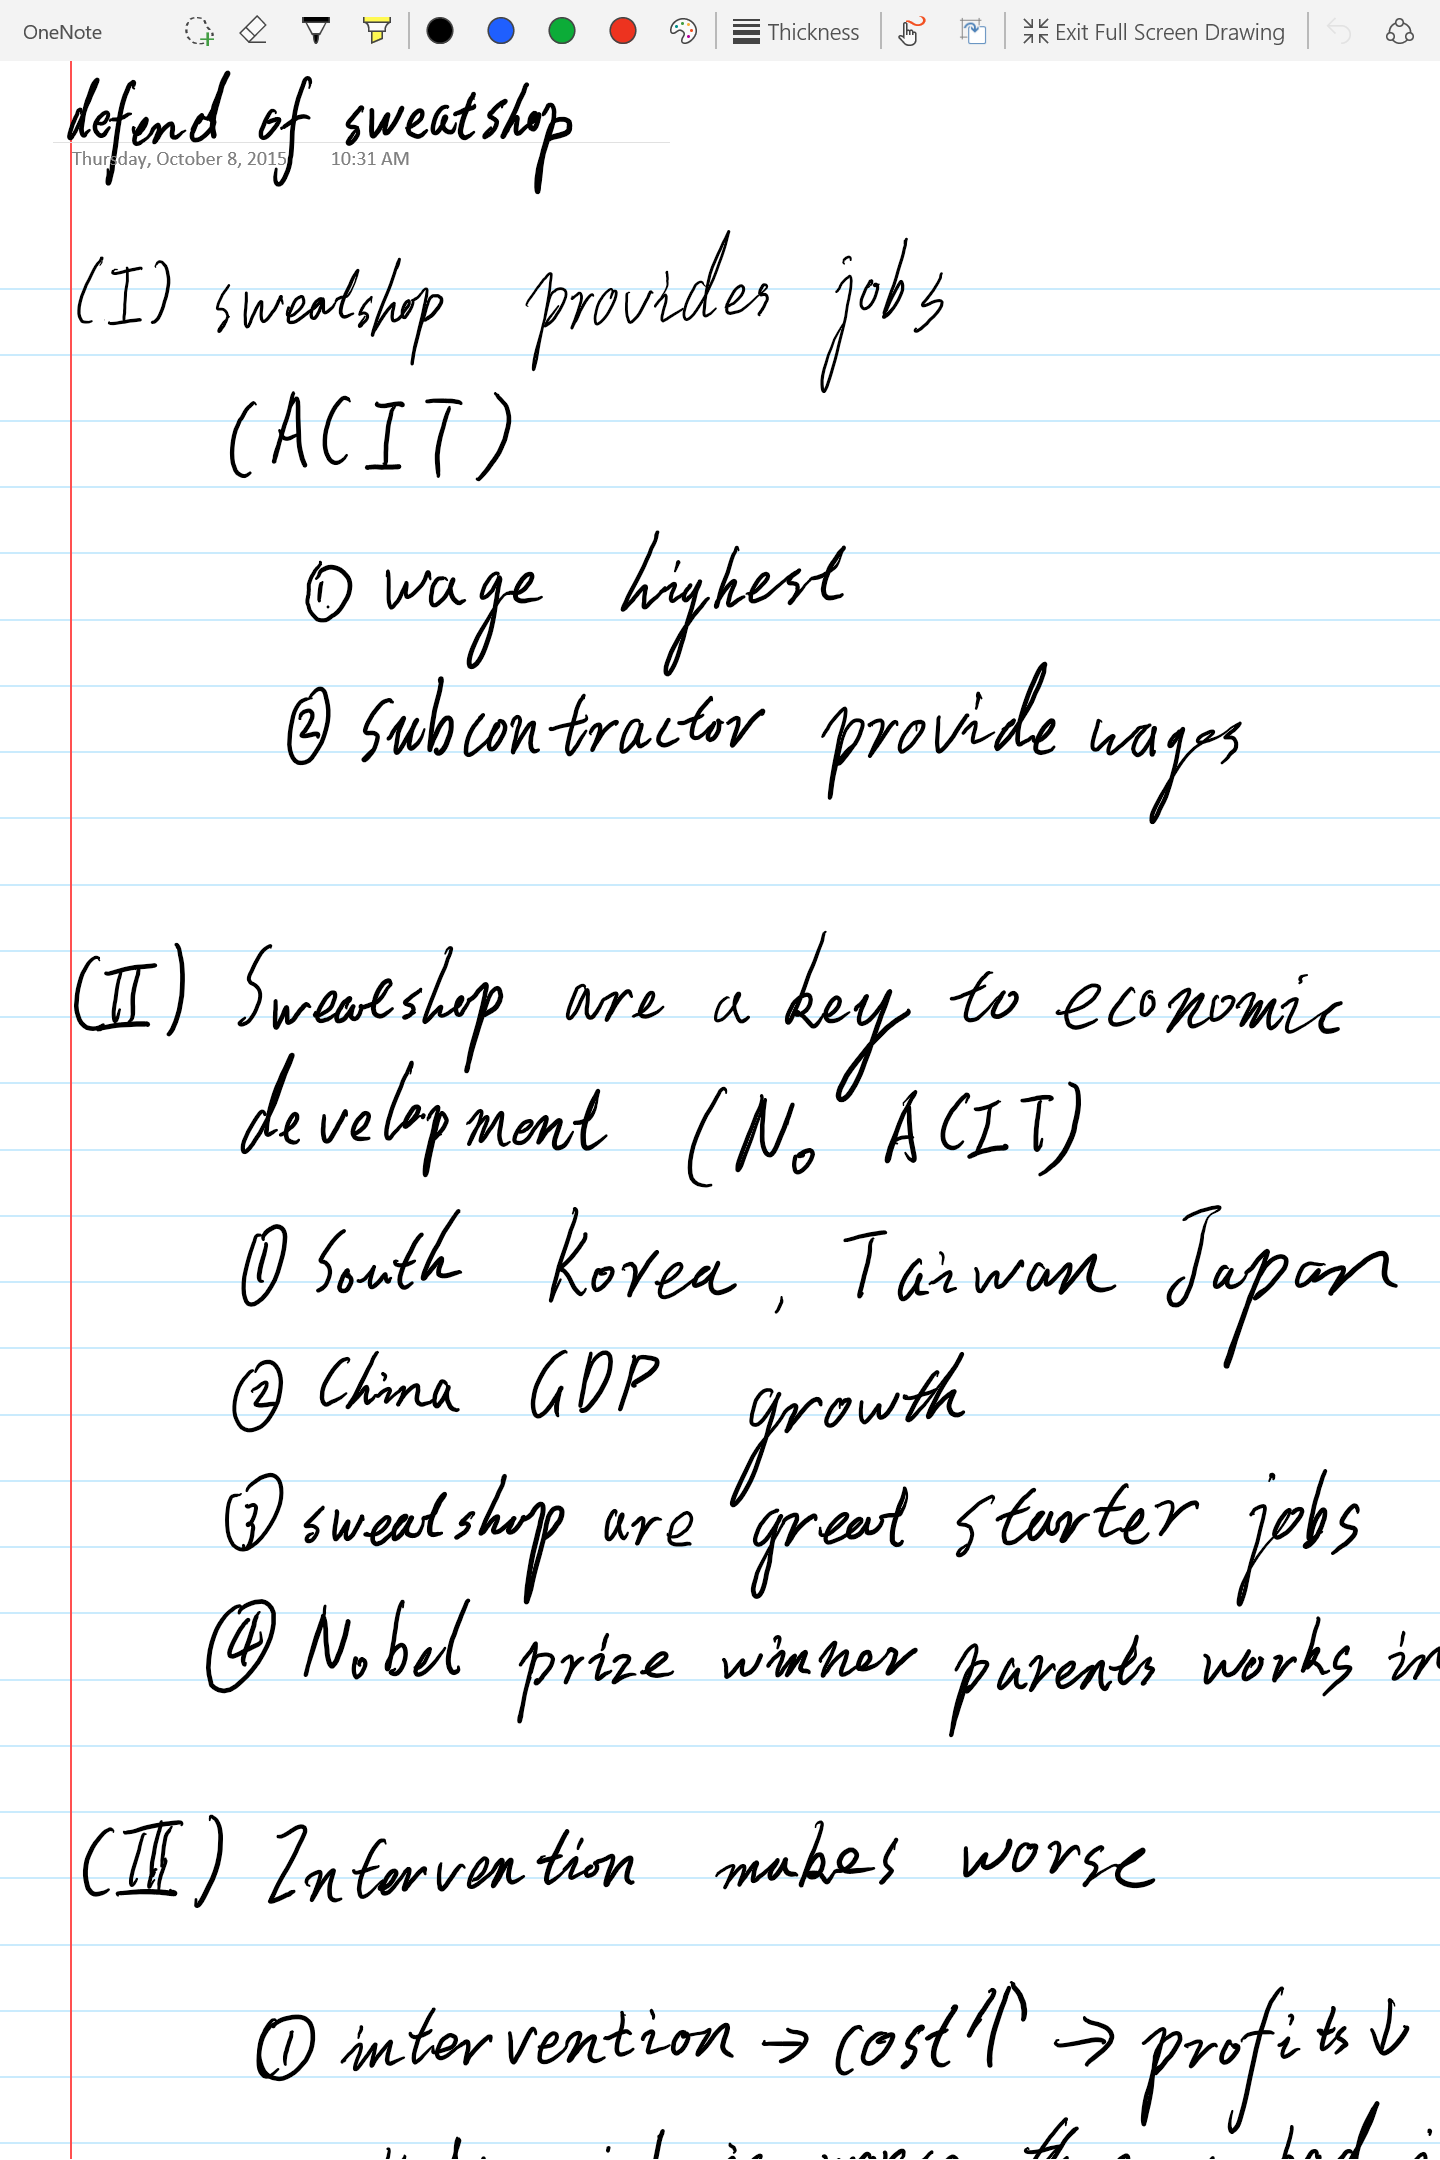 OneNote Thickness Exit Full Screen Drawing
defend of sweatshop
Thursday, October 8, 2015 10:31 AM
(I) sweatshop provides jobs
(ACIT)
① wage highest
② subcontractor provide wages
(II) Sweatshop are a key to economic
development (No ACIT)
① South Korea, Taiwan Japan
② China GDP growth
③ sweatshop are great starter jobs
④ Nobel prize winner parents works in
(III) Intervention makes worse
① intervention → cost ↑ → profits ↓
is worse than bad